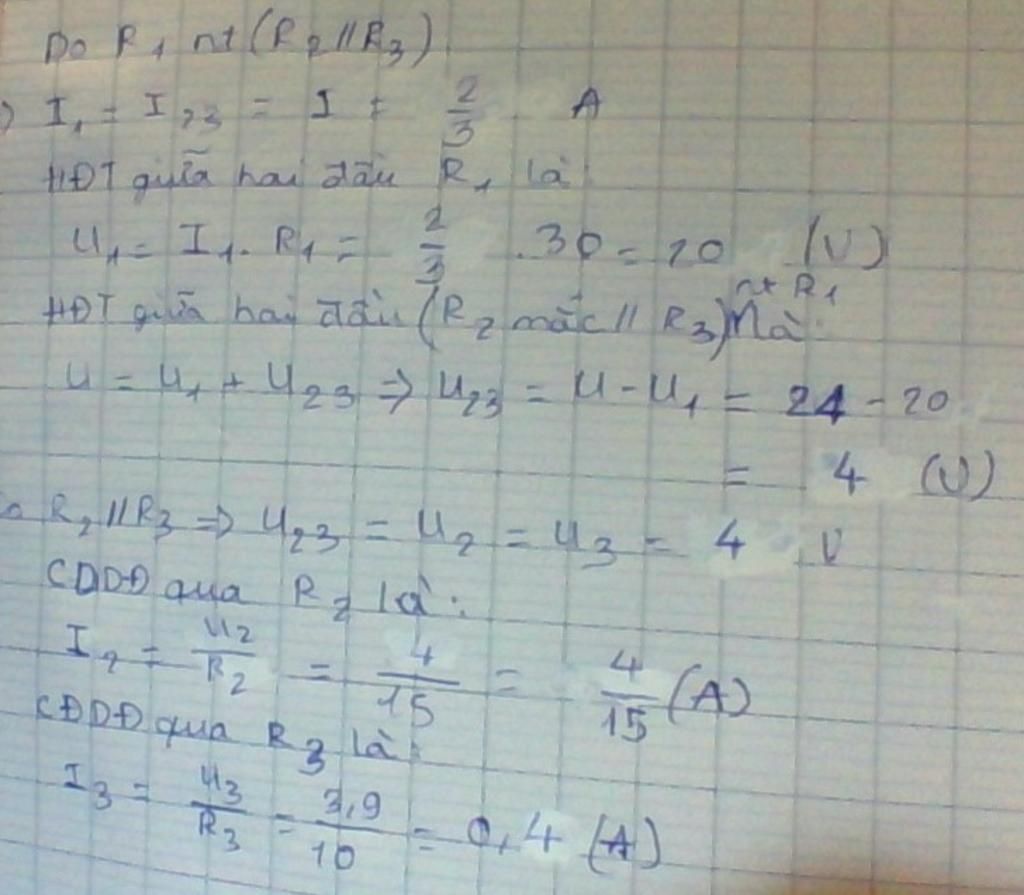 Do R1 nt (R2 // R3)
I1 = I23 = I = 2/3 A
HĐT giữa hai đầu R1 là:
U1 = I1. R1 = 2/3 .30 = 20 (V)
nt R1
HĐT giữa hai đầu (R2 mắc // R3) là:
U = U1 + U23 => U23 = U - U1 = 24 - 20
= 4 (V)
R2 // R3 => U23 = U2 = U3 = 4 V
CĐDĐ qua R2 là:
I2 = U2/R2 = 4/15 = 4/15 (A)
CĐDĐ qua R3 là:
I3 = U3/R3 = 3,9/10 = 0,4 (A)